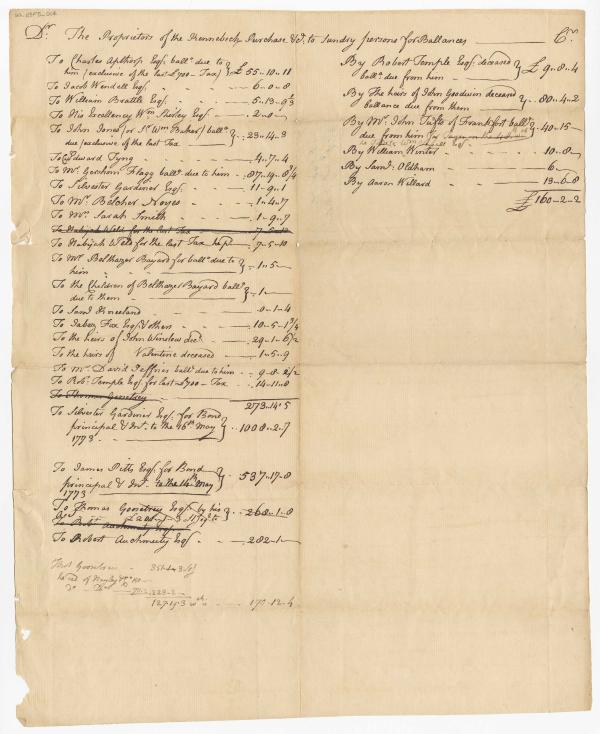 Dr. The Proprietors of the Kennebeck Purchase &c. to Sundry persons for Ballances Cr.
To Charles Apthorp Esqr. balla. due to
him (exclusive of the last £700 Tax) £ 55..10..11
To Jacob Wendell Esqr. 6..0..8
To William Brattle Esqr. 5..13..
To His Excellency Wm. Shirley Esqr. 2..0
To John Jones (or Sr. Wm. Baker) balla.
due (exclusive of the last Tax 23..14..3
To Edward Tyng 4..7..4
To Mr. Gershom Flagg balla. due to him 87..14..8/4
To Silvester Gardiner Esqr. 11..9..1
To Mr. Belcher Noyes 1..4..7
To Mrs. Sarah Smith 1..9..7
To Habijah Weld for the last Tax 7..5..10
To Habijah Weld for the last Tax 7..5..10
To Mr. Belthazer Bayard for balla. due to
him 1..5
To the Children of Belthazer Bayard balla.
due to them 1
To Saml. Kneeland 0..1..4
To Jabez Fox Esqr. & others 10..5..1 3/4
To the heirs of John Winslow decd. 29..1..6 1/2
To the heirs of Valentine deceased 1..5..9
To Mr. David Jeffries balla. due to him 9..8..2 1/2
To Robt. Temple Esqr. for last £700 Tax 14..11..8
To Thomas Goostrey
273..14..5
To Silvester Gardiner Esqr. for Bond
principal & Int. to the 16th May
1773 1008..2..7
To James Pitts Esqr. for Bond
principal & Int. to the 14th May
1773 537..17..8
To Thomas Goostrey Esqr. by his 268..1..8
To Robt. Auchmuty Esqr.
To Robert Auchmuty Esqr. 282..1
Thos. Goostree
127..15..3 170..12..4
By Robert Temple Esqr. deceased
balla. due from him £ 9..8..4
By The heirs of John Goodwin deceased
ballance due from them 80..4..2
By Mr. John Tufts of Frankfort balla.
due from him 40..15
By William Winter 10..8
By Saml. Oldham 6
By Aaron Willard 13..6..8
£ 160..2..2